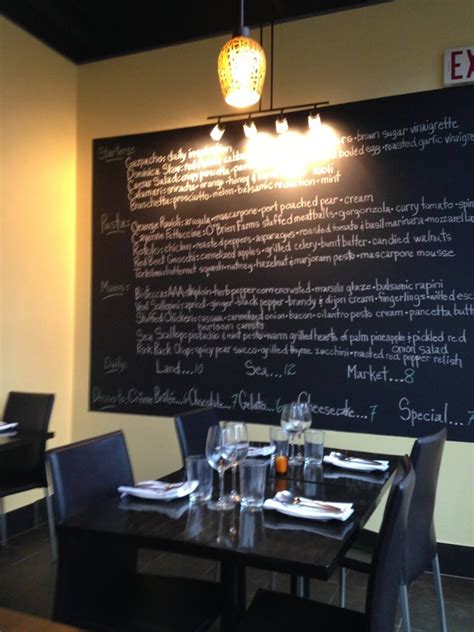 EX
Starters:
Gazpacho: daily inspiration
Dominica brown sugar vinaigrette
Caesar Salad: crispy pancetta boiled egg • roasted garlic vinaigrette
Calamari: sriracha • orange • honey aioli
Bruschetta: prosciutto • melon • balsamic reduction • mint
Pasta:
Orange Ravioli: arugula • mascarpone • port poached pear • cream
Cayenne Fettuccine: O'Brien Farms stuffed meatballs • gorgonzola • curry tomato • shrimp
Rotolo: chicken • roasted peppers • asparagus • roasted tomato & basil marinara • mozzarella
Red Beet Gnocchi: caramelized apples • grilled celery • burnt butter • candied walnuts
Tortellini: butternut squash • nutmeg • hazelnut & marjoram pesto • mascarpone mousse
Mains:
Bistecca: AAA striploin • herb peppercorn encrusted • marsala glaze • balsamic rapini
Veal Scallopini: apricot • ginger • black pepper • brandy & dijon cream • fingerlings • wilted
Stuffed Chicken: cassava • caramelized onion • bacon • cilantro pesto cream • pancetta
heirloom carrots
Sea Scallops: pistachio & mint pesto • warm grilled hearts of palm • pineapple & pickled red
onion salad
Pork Rack Chops: spicy pear • grilled thyme zucchini • roasted red pepper relish
Daily: Land...10 Sea...12 Market...8
Desserts: Crème Brûlée 6 Chocolate...7 Gelato...6 Cheesecake...7 Special...7